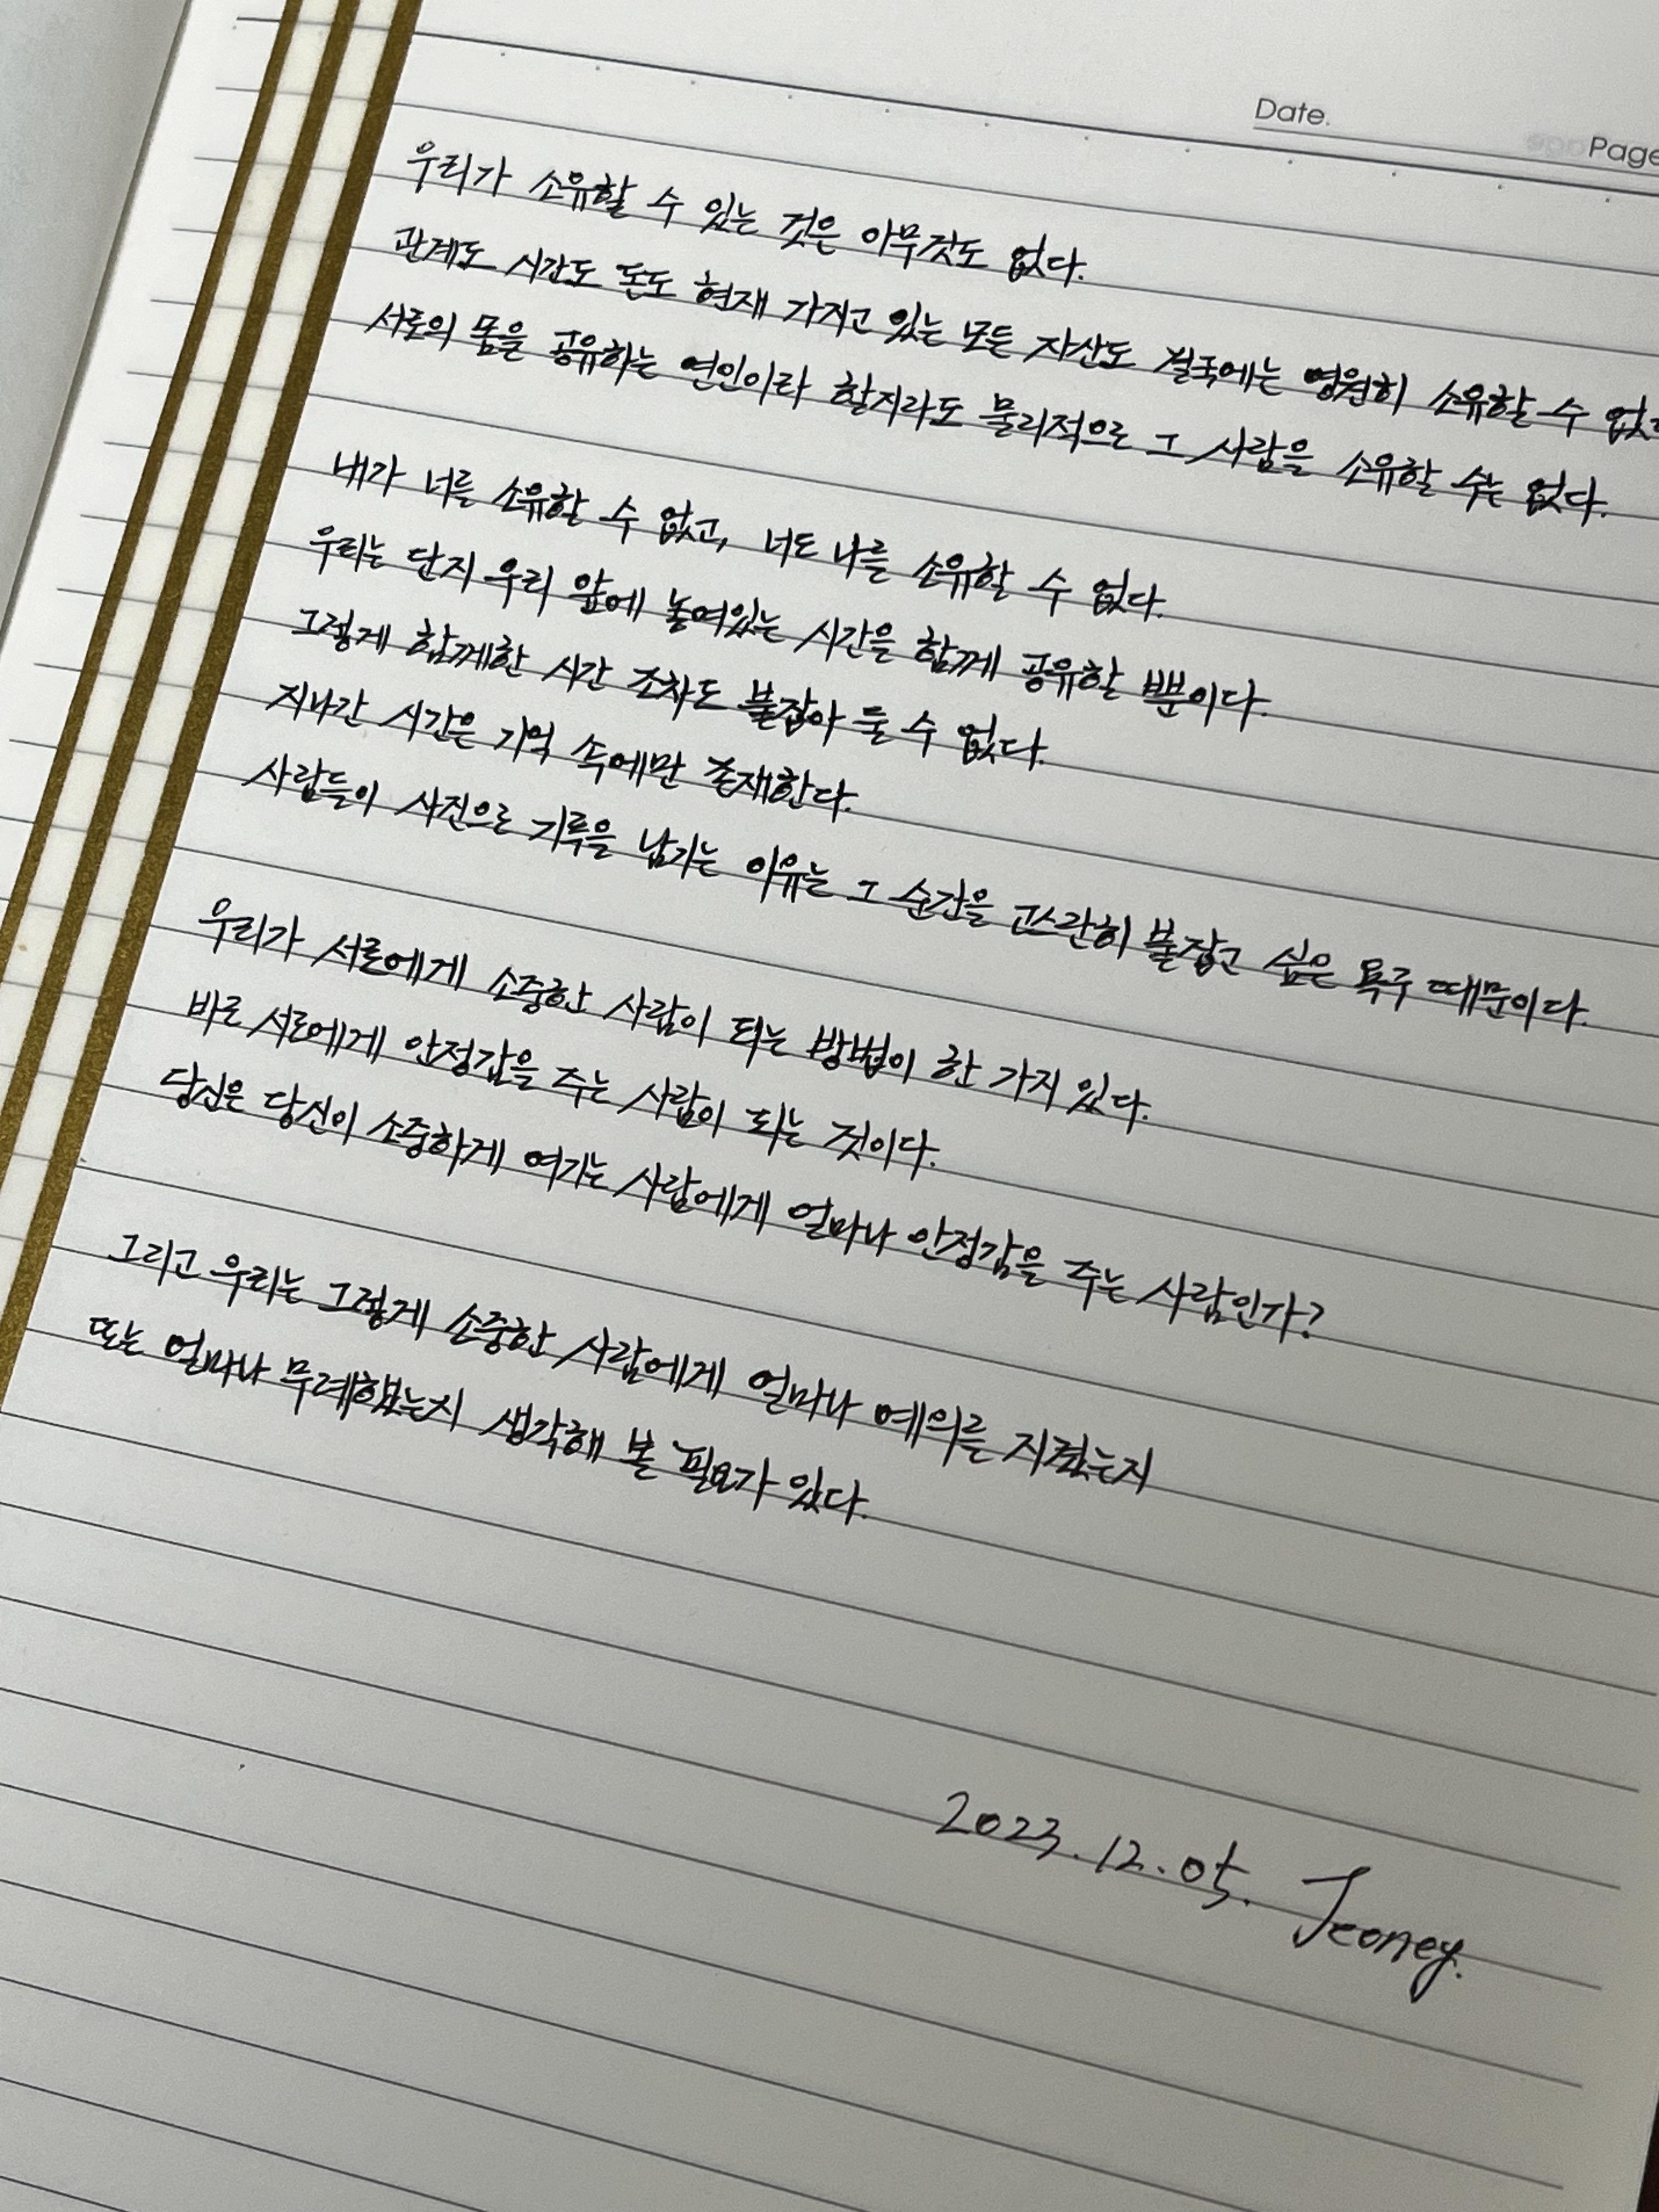 Date.
Page
우리가 소유할 수 있는 것은 아무것도 없다.
관계도 시간도 돈도 현재 가지고 있는 모든 자산도 결국에는 영원히 소유할 수 없다
서로의 몸을 공유하는 연인이라 할지라도 물리적으로 그 사람을 소유할 수는 없다.
내가 너를 소유할 수 없고, 너도 나를 소유할 수 없다.
우리는 단지 우리 앞에 놓여있는 시간을 함께 공유할 뿐이다.
그렇게 함께한 시간 조차도 붙잡아 둘 수 없다.
지나간 시간은 기억 속에만 존재한다.
사람들이 사진으로 기록을 남기는 이유는 그 순간을 고스란히 붙잡고 싶은 욕구 때문이다.
우리가 서로에게 소중한 사람이 되는 방법이 한 가지 있다.
바로 서로에게 안정감을 주는 사람이 되는 것이다.
당신은 당신이 소중하게 여기는 사람에게 얼마나 안정감을 주는 사람인가?
그리고 우리는 그렇게 소중한 사람에게 얼마나 예의를 지켰는지
또는 얼마나 무례했는지 생각해 볼 필요가 있다.
2023.12.05. Jeoney.